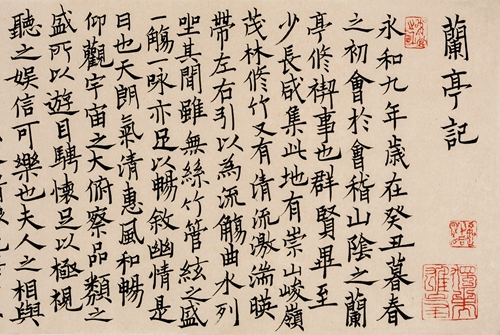 蘭亭記
永和九年歲在癸丑暮春
之初會於會稽山陰之蘭
亭修禊事也群賢畢至
少長咸集此地有崇山峻嶺
茂林修竹又有清流激湍暎
帶左右引以為流觴曲水列
坐其間雖無絲竹管絃之盛
一觴一詠亦足以暢敘幽情是
日也天朗氣清惠風和暢
仰觀宇宙之大俯察品類之
盛所以遊目騁懷足以極視
聽之娛信可樂也夫人之相與